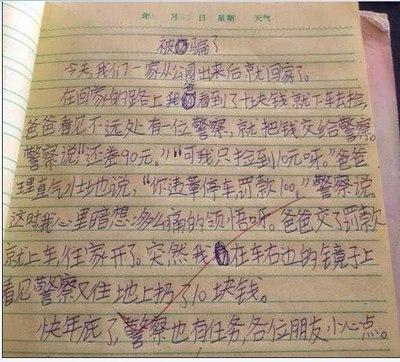 年 月 日 星期 天气
被骗了
今天,我们一家从公园出来后就回家了。
在回家的路上我爸看到了十块钱就下车去捡,
爸爸看见不远处有一位警察,就把钱交给警察。
警察说“还券90元。”“可我只捡到10元呀。”爸爸
理直气壮地说,“你违章停车罚款100,”警察说
这时我心里暗想:多么痛的领悟呀。爸爸交了罚款
就上车住家开了。突然我在车右边的镜子上
看见警察又住地上扔了10块钱。
快年死了,警察也有任务,各位朋友小心点。